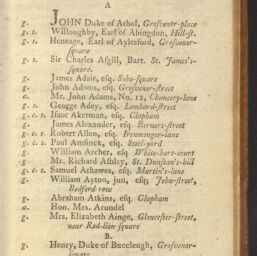 A
g. 1. JOHN Duke of Athol, Grosvenor-place
g. 1. Willoughby, Earl of Abingdon, Hill-st.
g. 1. Heneage, Earl of Aylesford, Grosvenor-
square
g. 1. Sir Charles Asgill, Bart. St. James's-
square.
g. James Adair, esq. Soho-square
g. John Adams, esq. Grosvenor-street
a. Mr. John Adams, No. 12, Chancery-lane
g. 1. George Adey, esq. Lombard-street
g. c. 1. Isaac Akerman, esq. Clapham
g. James Alexander, esq. Berners-street
g. c. 2. Robert Allen, esq. Ironmonger-lane
g. 1. 1. Paul Amsinck, esq. Steel-yard
g. William Archer, esq. White-hart-court
g. Mr. Richard Ashley, St. Dunstan's-hill
g. c. 2. Samuel Athawes, esq. Martin's-lane
g. William Ayton, jun, esq; John-street,
Bedford row
g. Abraham Atkins, esq. Clapham
a. Hon. Mrs. Arundel
g. Mrs. Elizabeth Ainge, Gloucester-street,
near Red-lion-square
B.
g. Henry, Duke of Buccleugh, Grosvenor-
square